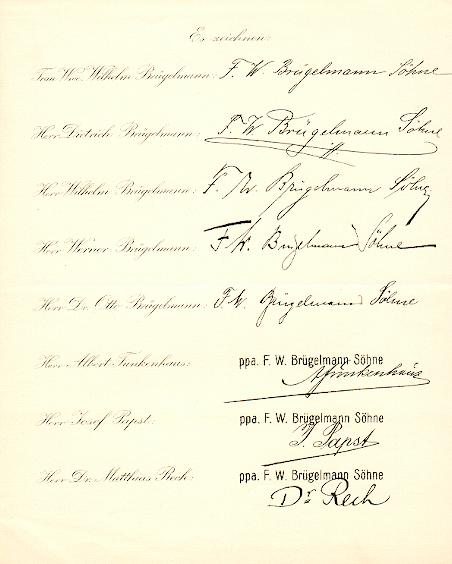 Es zeichnen:
Frau Wwe. Wilhelm Brügelmann: F. W. Brügelmann Söhne
Herr Dietrich Brügelmann: F. W Brügelmann Söhne
Herr Wilhelm Brügelmann: F. W. Brügelmann Söhne
Herr Werner Brügelmann: F. W. Brügelmann Söhne
Herr Dr. Otto Brügelmann: F. W. Brügelmann Söhne
Herr Albert Funkenhaus: ppa. F. W. Brügelmann Söhne
AFunkenhaus
Herr Josef Papst: ppa. F. W. Brügelmann Söhne
J. Papst
Herr Dr. Matthäus Rech: ppa. F. W. Brügelmann Söhne
Dr Rech